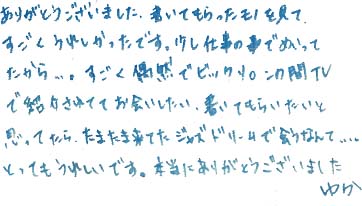 ありがとうございました。書いてもらったモノを見て、
すごくうれしかったです。少し仕事の事でめいって
たから…。すごく偶然でビックリ。この間TV
で紹介されてて お会いしたい、書いてもらいたいと
思ってたら、たまたま来てたジャズドリームで会うなんて….
とってもうれしいです。本当にありがとうございました
ゆか